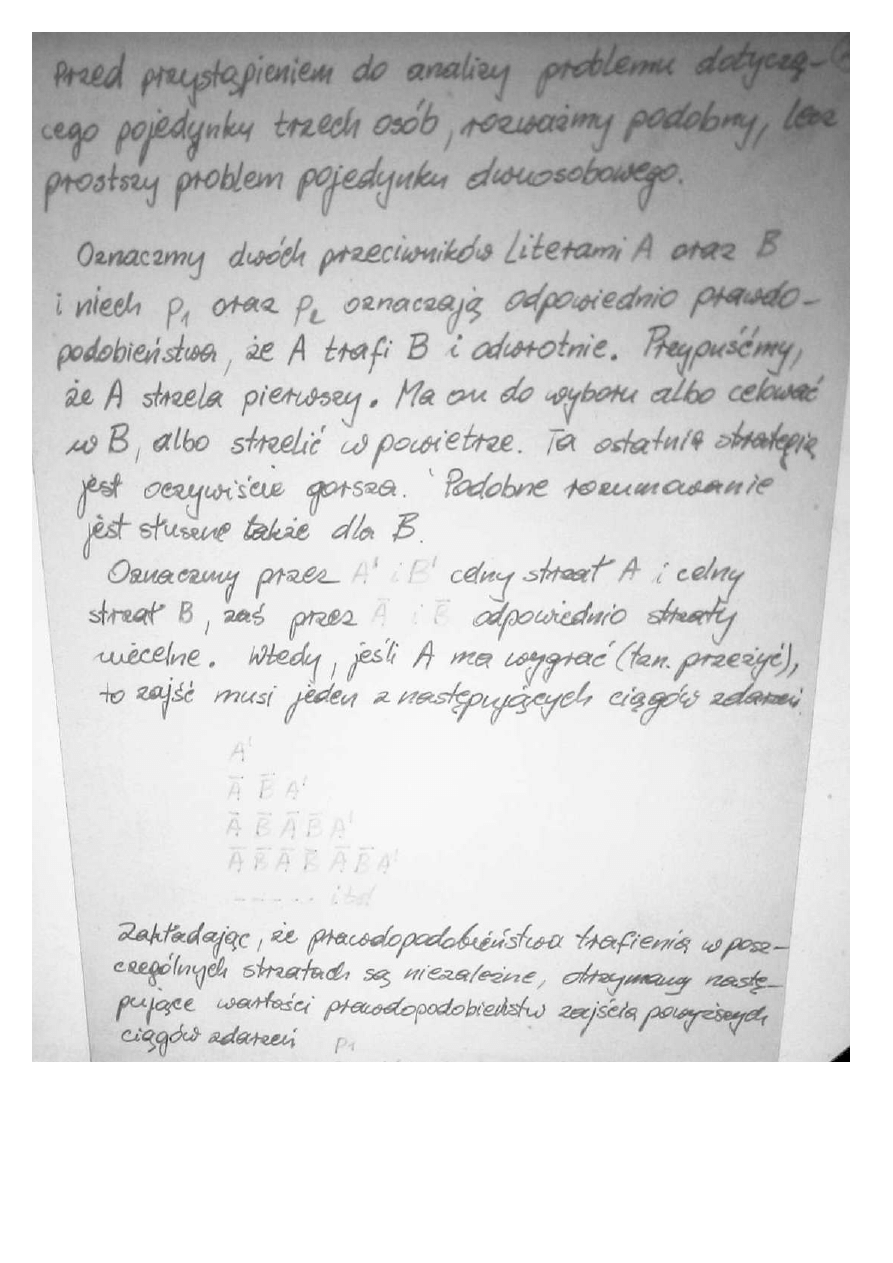 Przed przystąpieniem do analizy problemu dotyczą-
cego pojedynku trzech osób, rozważmy podobny, lecz
prostszy problem pojedynku dwuosobowego.
Oznaczmy dwóch przeciwników literami A oraz B
i niech p₁ oraz p₂ oznaczają odpowiednio prawdo-
podobieństwa, że A trafi B i odwrotnie. Przypuśćmy,
że A strzela pierwszy. Ma on do wyboru albo celować
w B, albo strzelić w powietrze. Ta ostatnia strategia
jest oczywiście gorsza. Podobne rozumowanie
jest słuszne także dla B.
Oznaczmy przez A' i B' celny strzał A i celny
strzał B, zaś przez A̅ i B̅ odpowiednio strzały
niecelne. Wtedy, jeśli A ma wygrać (tzn. przeżyć),
to zajść musi jeden z następujących ciągów zdarzeń
A'
A̅ B̅ A'
A̅ B̅ A̅ B̅ A'
A̅ B̅ A̅ B̅ A̅ B̅ A'
- - - - . . . itd
Zakładając, że prawdopodobieństwa trafienia w posz-
czególnych strzałach są niezależne, otrzymamy nastę-
pujące wartości prawdopodobieństw zajścia powyższych
ciągów zdarzeń p₁